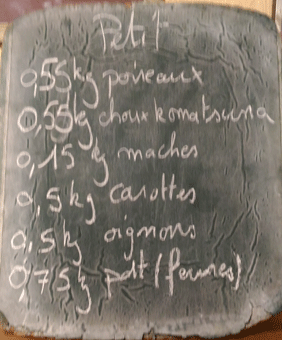 Petit
0,55kg poireaux
0,55kg choux komatsuna
0,15 kg maches
0,5kg carottes
0,5kg oignons
0,75kg pdt (fermes)